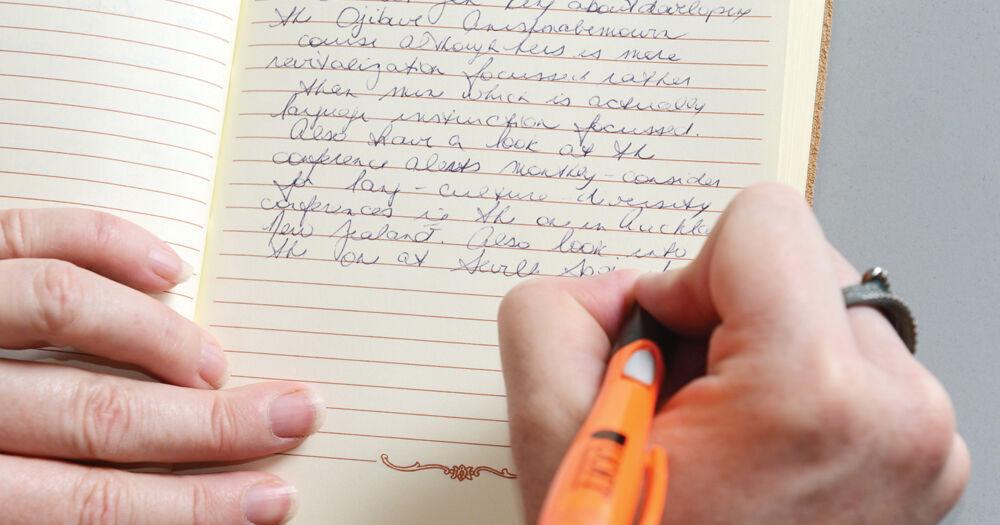 about developing
the Ojibwe Anishinabemowin
course although hers is more
revitalization focussed rather
than mine which is actually
language instruction focussed.
Also have a look at the
conference alerts monthly - consider
for lang - culture - diversity
conferences is the one in Auckla
New Zealand. Also look into
the one at Seville Spai